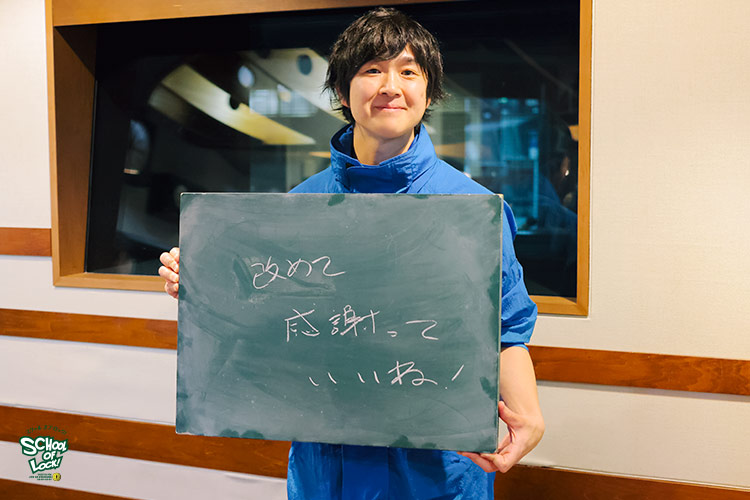 改めて
感謝って
いいね!
SCHOOL
OF
LOCK!